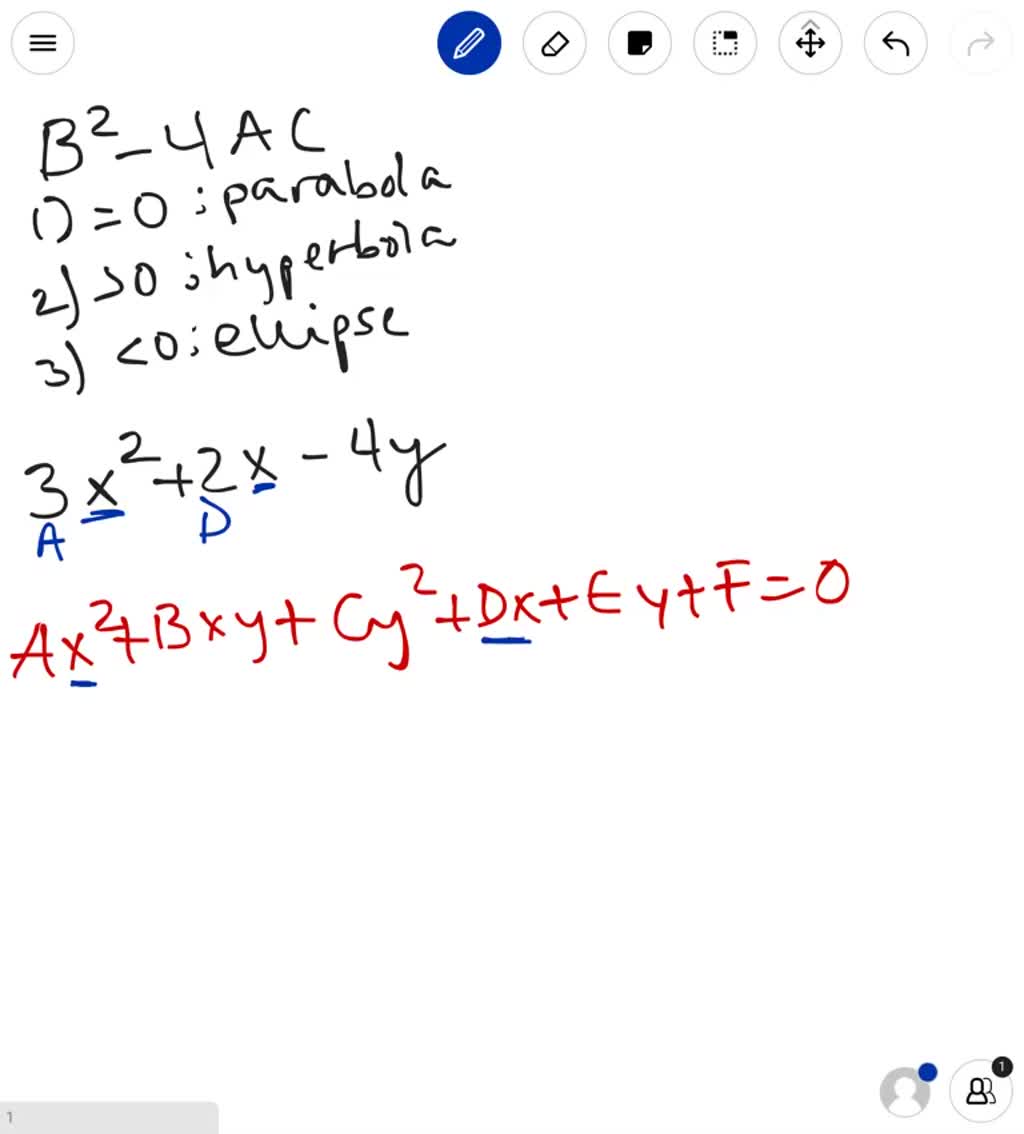 B²-4AC
1) = 0 : parabola
2) >0 : hyperbola
3) <0 : ellipse
3x²+2x-4y
A D
Ax²+Bxy+Cy²+Dx+Ey+F=0
1
1